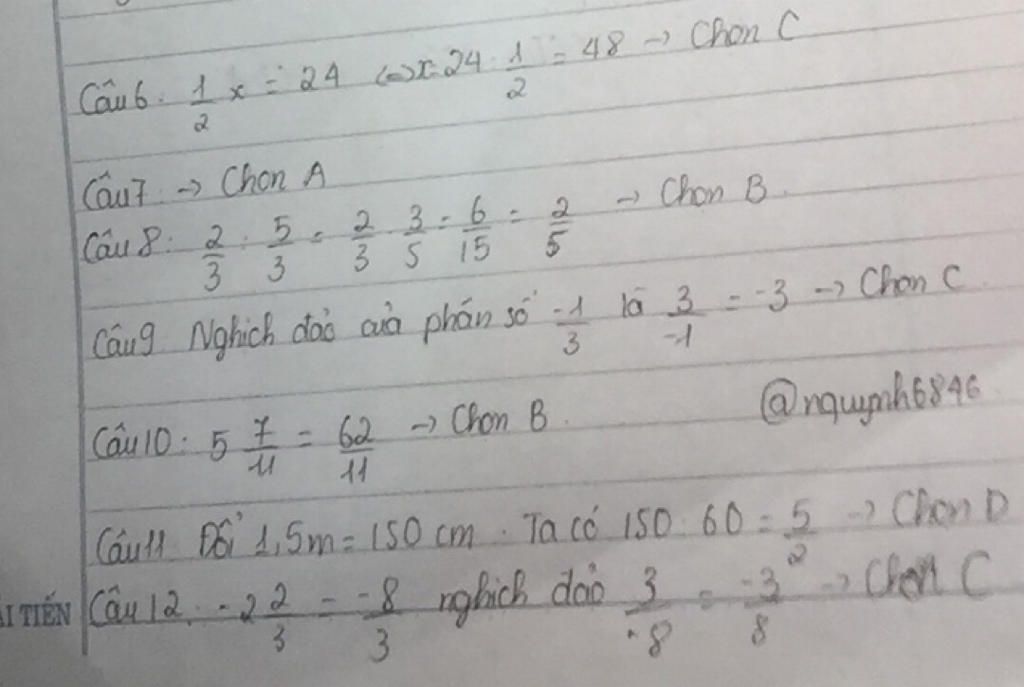 Câu 6: 1/2 x = 24 <=> x = 24 : 1/2 = 48 -> Chọn C
Câu 7 -> Chọn A
Câu 8: 2/3 : 5/3 = 2/3 . 3/5 = 6/15 = 2/5 -> Chọn B.
Câu 9 Nghịch đảo của phân số -1/3 là 3/-1 = -3 -> Chọn C.
Câu 10: 5 7/11 = 62/11 -> Chọn B.
@nquynh6846
Câu 11 Đổi 1,5m = 150 cm. Ta có 150 : 60 = 5/2 -> Chọn D
ẢI TIẾN
Câu 12. -2 2/3 = -8/3 nghịch đảo 3/-8 = -3/8 -> Chọn C